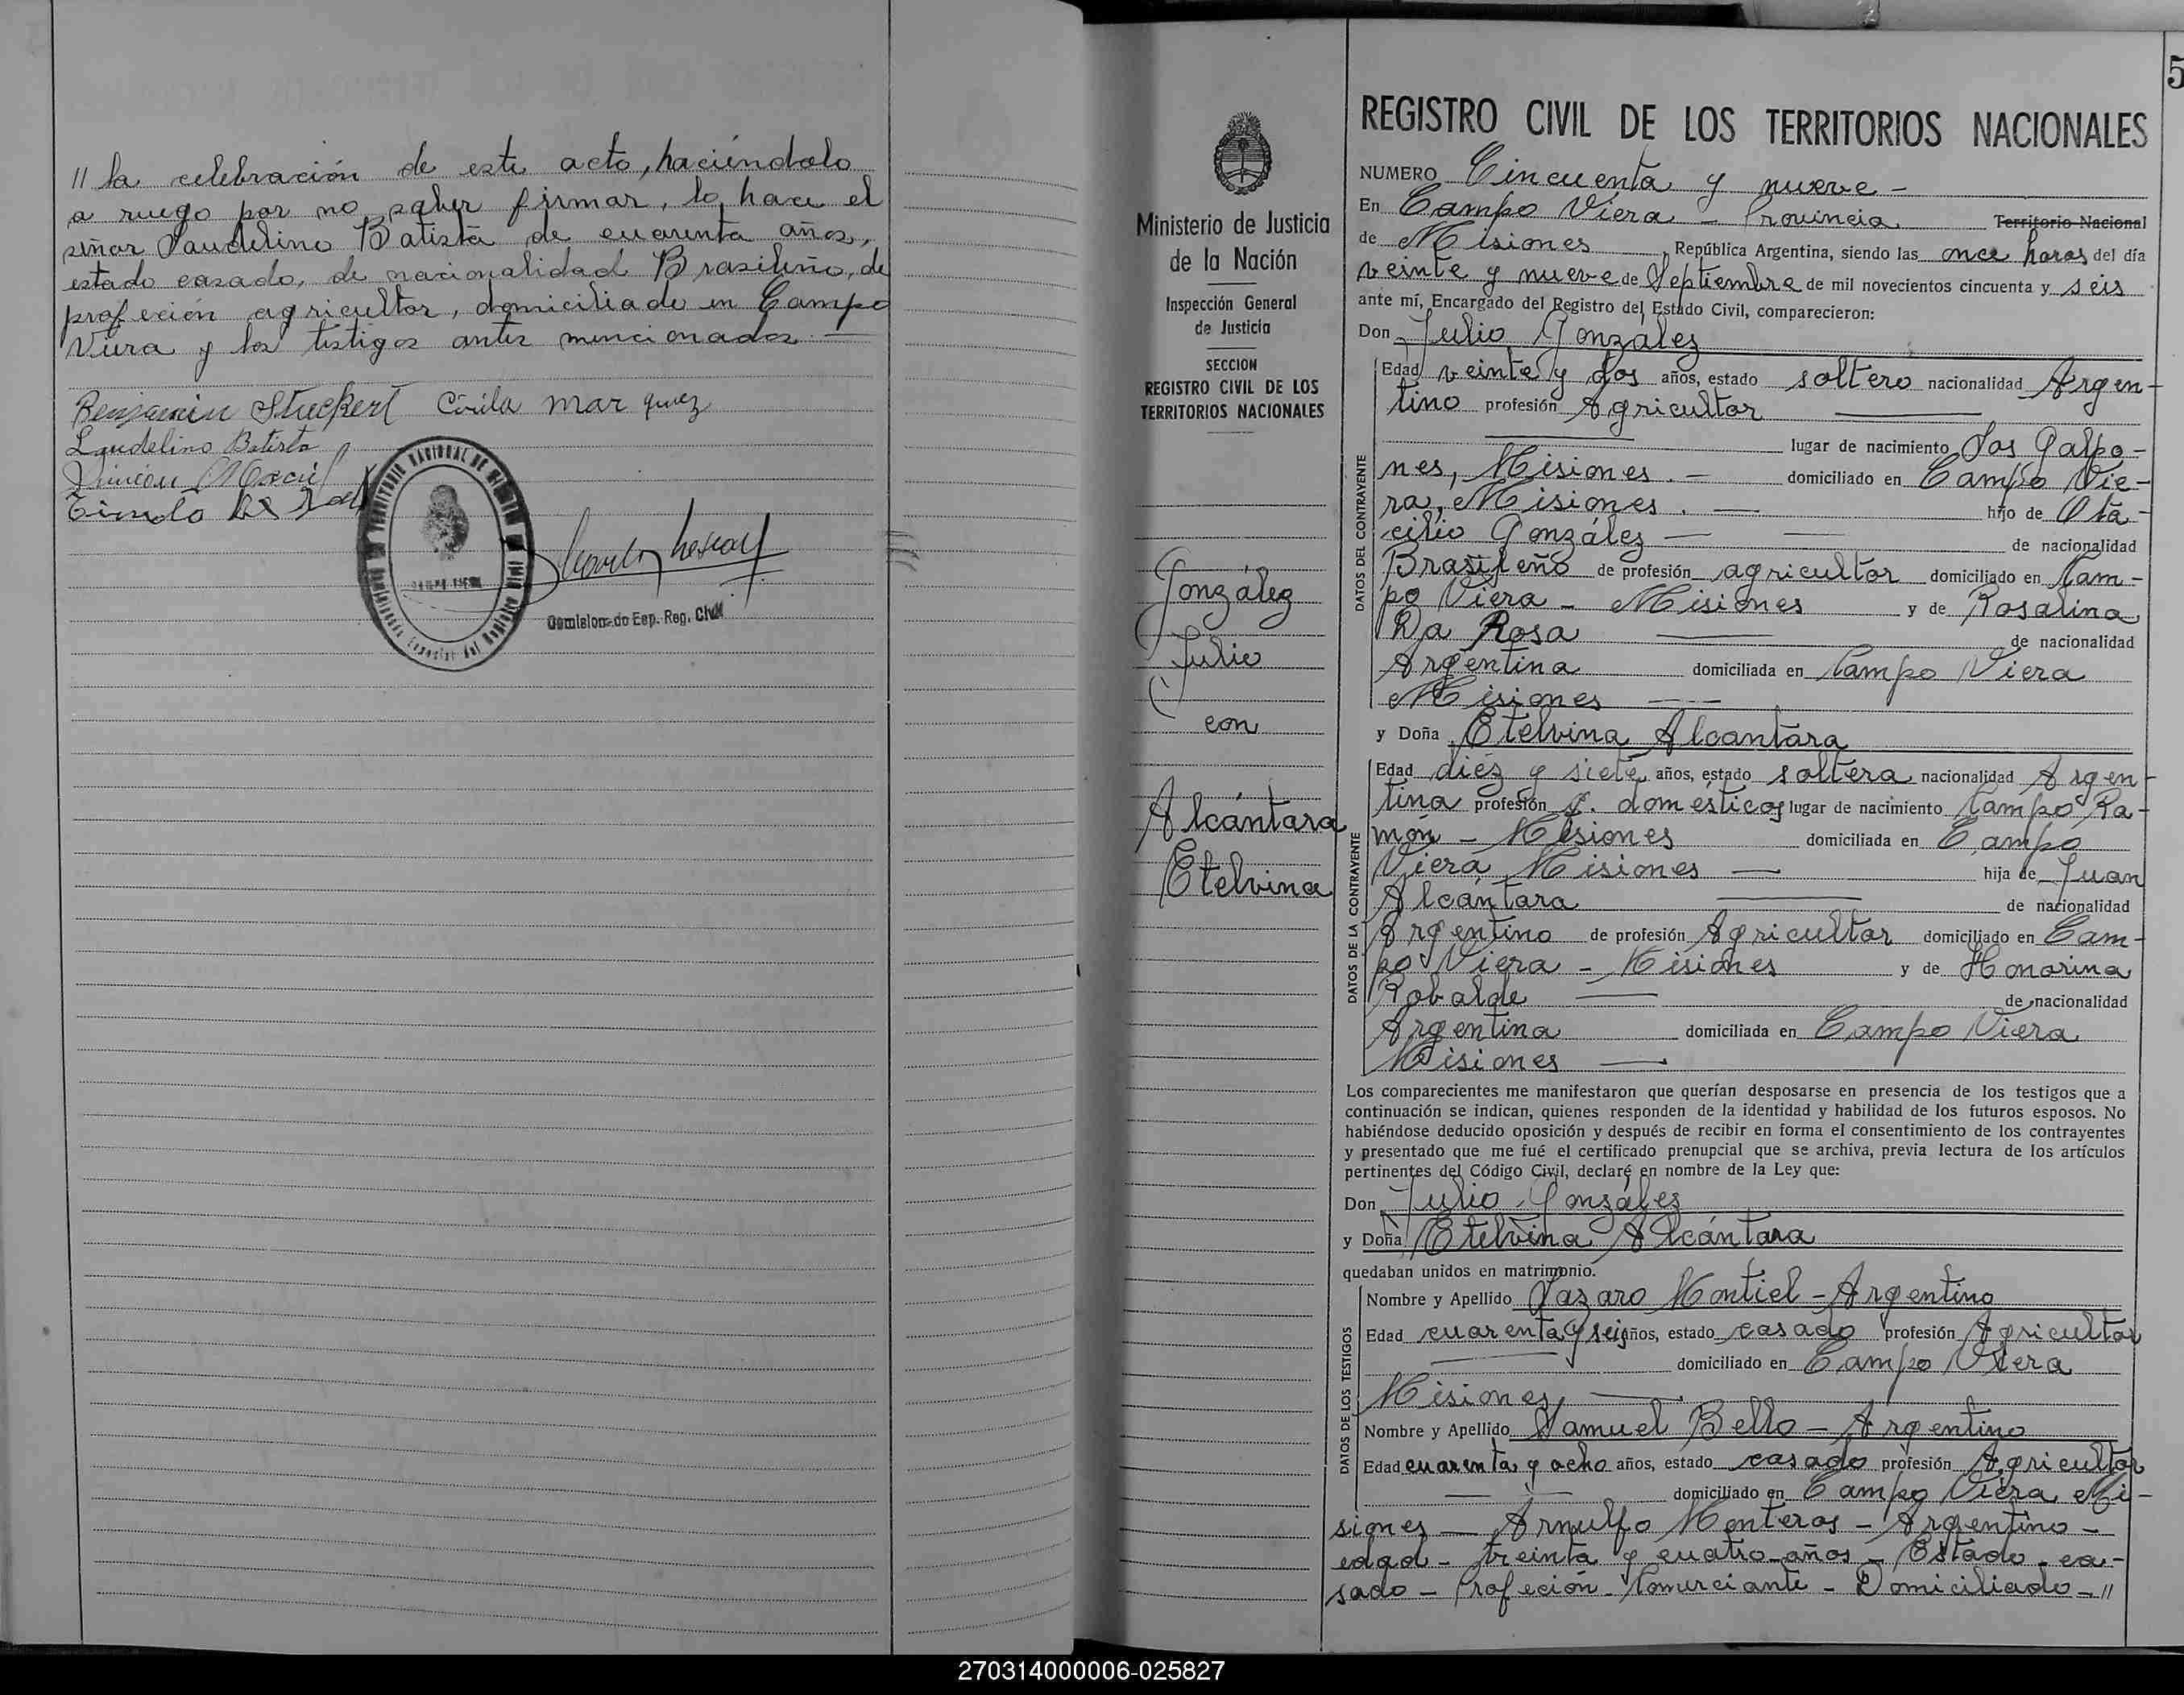 // la celebración de este acto, haciéndolo
a ruego por no saber firmar, lo hace el
señor Laudelino Batista de cuarenta años,
estado casado, de nacionalidad Brasileño, de
profeción agricultor, domiciliado en Campo
Viera y los testigos antes mencionados. —
Benjamin Stuckert Cirila marquez
Laudelino Batista
Comisionado Esp. Reg. Civil
5
Ministerio de Justicia
de la Nación
Inspección General
de Justicia
SECCION
REGISTRO CIVIL DE LOS
TERRITORIOS NACIONALES
González
Julio
con
Alcántara
Etelvina
REGISTRO CIVIL DE LOS TERRITORIOS NACIONALES
NUMERO Cincuenta y nueve -
En Campo Viera - Provincia Territorio Nacional
de Misiones, República Argentina, siendo las once horas del día
veinte y nueve de Septiembre de mil novecientos cincuenta y seis
ante mí, Encargado del Registro del Estado Civil, comparecieron:
Don Julio González
DATOS DEL CONTRAYENTE
Edad veinte y dos años, estado soltero nacionalidad Argen-
tino profesión Agricultor
lugar de nacimiento Los Galpo-
nes, Misiones. - domiciliado en Campo Vie-
ra, Misiones. — hijo de Ota-
cilio González — de nacionalidad
Brasileño de profesión agricultor domiciliado en Cam-
po Viera - Misiones y de Rosalina
Da Rosa — de nacionalidad
Argentina domiciliada en Campo Viera
Misiones —
y Doña Etelvina Alcantara
DATOS DE LA CONTRAYENTE
Edad diez y siete años, estado soltera nacionalidad Argen-
tina profesión q. domésticos lugar de nacimiento Campo Ra-
món - Misiones domiciliada en Campo
Viera Misiones — hija de Juan
Alcántara — de nacionalidad
Argentino de profesión Agricultor domiciliado en Cam-
po Viera - Misiones y de Honorina
Robalde — de nacionalidad
Argentina domiciliada en Campo Viera
Misiones —
Los comparecientes me manifestaron que querían desposarse en presencia de los testigos que a
continuación se indican, quienes responden de la identidad y habilidad de los futuros esposos. No
habiéndose deducido oposición y después de recibir en forma el consentimiento de los contrayentes
y presentado que me fué el certificado prenupcial que se archiva, previa lectura de los artículos
pertinentes del Código Civil, declaré en nombre de la Ley que:
Don Julio González
y Doña Etelvina Alcántara
quedaban unidos en matrimonio.
DATOS DE LOS TESTIGOS
Nombre y Apellido Lazaro Montiel - Argentino
Edad cuarenta y seis años, estado casado profesión Agricultor
domiciliado en Campo Viera
Misiones —
Nombre y Apellido Samuel Bello - Argentino
Edad cuarenta y ocho años, estado casado profesión Agricultor
domiciliado en Campo Viera Mi-
siones — Arnulfo Monteros - Argentino -
edad - treinta y cuatro años - Estado - ca-
sado - Profeción - Comerciante - Domiciliado - //
270314000006-025827